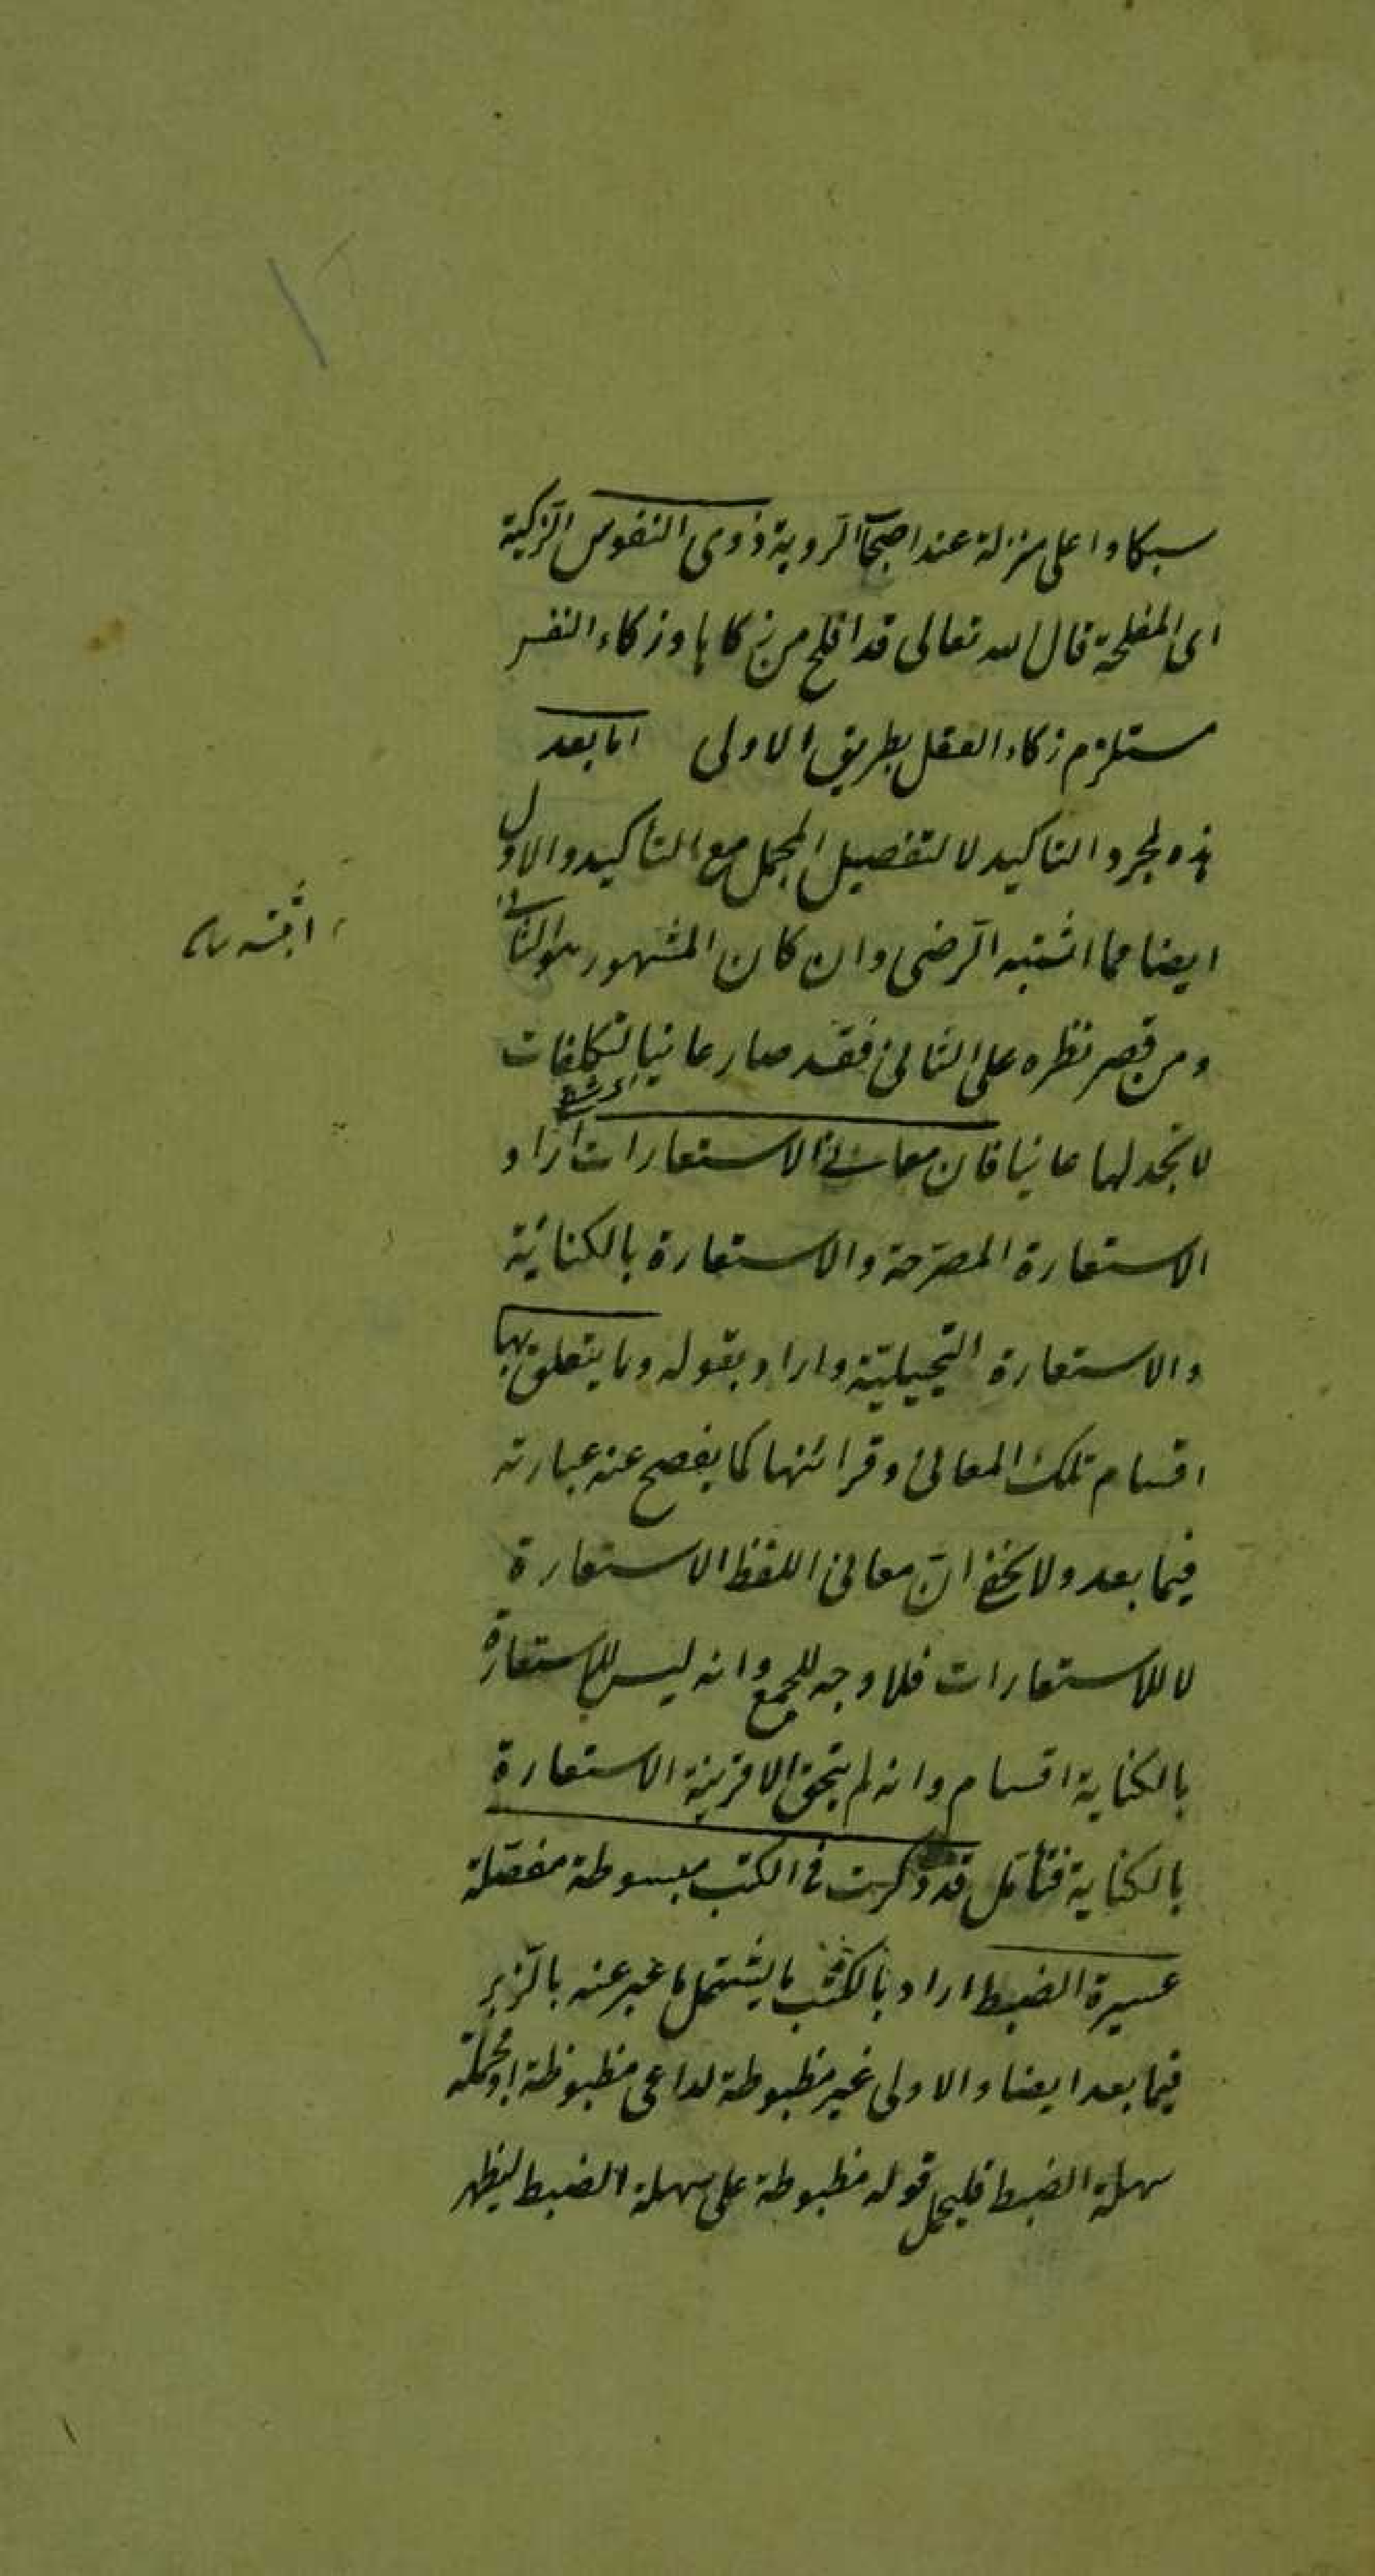 سبكا واعلى منزلة عند اصحاب الروية ذوى النفوس الزكية
اى المفلحة قال الله تعالى قد افلح من زكاها وزكاء النفس
مستلزم زكاء العقل بطريق الاولى اما بعد
هذه لمجرد التاكيد لا لتفصيل المجمل مع التأكيد والاول
ايضا مما اثبته الرضى وان كان المشهور هو الثانى
ومن قصر نظره على الثانى فقد صار عانيا لتكلفات
لا تجد لها عانيا فان معانى الاستعارات اراد
الاستعارة المصرحة والاستعارة بالكنائة
والاستعارة التخييلية واراد بقوله وما يتعلق بها
اقسام تلك المعانى وقرائنها كما يفصح عنه عبارته
فيما بعد ولا يخفى ان معانى اللفظ الاستعارة
لا للاستعارات فلا وجه للجمع وانه ليس للاستعارة
بالكناية اقسام وانه لم يتحقق الا قرينة الاستعارة
بالكناية فتأمل قد ذكرت فى الكتب مبسوطة مفصلة
عسيرة الضبط اراد بالكتب ما يشتمل ما عبر عنه بالزبر
فيما بعد ايضا والاولى غير مظبوطة لداعى مظبوظة او مجملة
سهلة الضبط فليحمل قوله مظبوطة على سهلة الضبط ليظهر